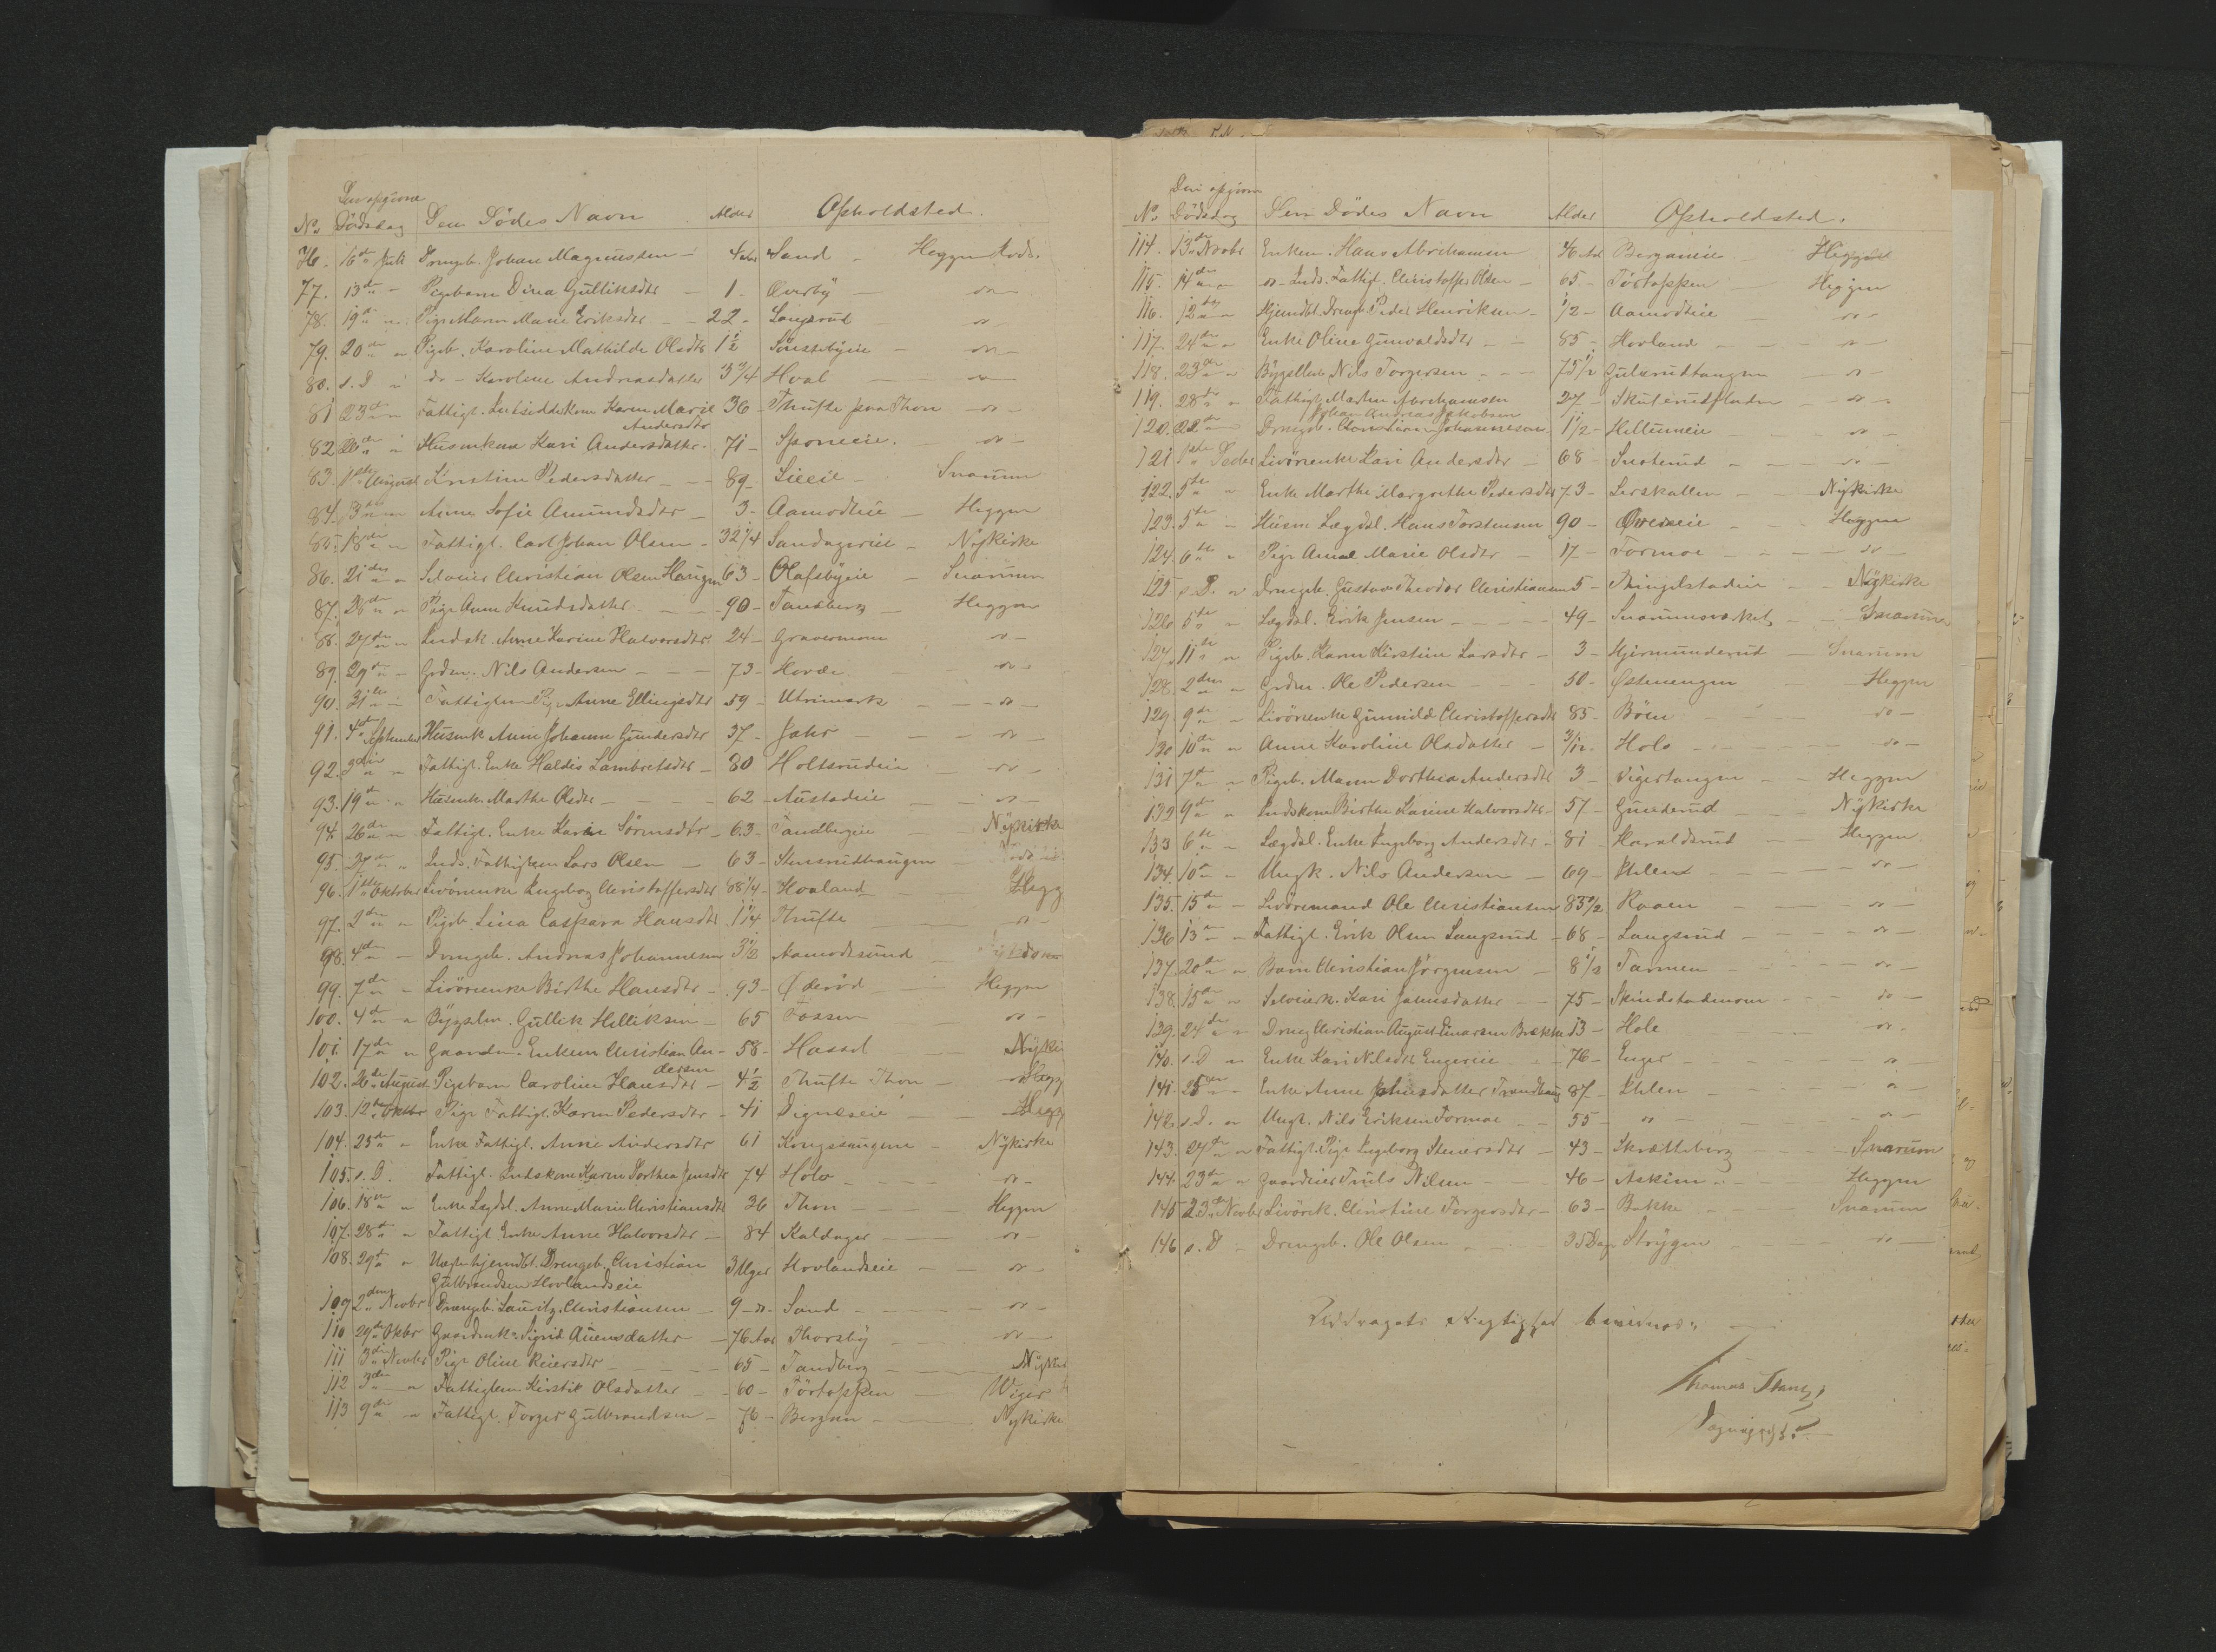 Den opgivne
No. Dödsdag Den Dödes Navn Alder Opholdsted.
76. 16de Juli Drengb. Johan Magnussen - 4 Aar Sand - Heggen Sods.
77. 13de - Pigebarn Dina Gulliksdtr - 1 - Överby - do -
78. 19de - Pige Maren Marie Eriksdtr - - 22 - Langerud do
79. 20de - Pigeb. Karoline Mathilde Olsdtr 1 1/2 Sönstebyeie - do -
80. s. D - do - Karoline Andreasdatter 3 3/4 Hval - do
81 23de - Fattigl. Indsidderkone Karen Marie 36 - Thufte paa Thon - do -
Andersdtr
82 26de - Husmkone Kari Andersdatter - 71 - Sponeeie. - do -
83. 1ste August Kirstine Pedersdatter - - 89 - Lieeie - Snarum
84. 3de - Anne Sofie Amundsdtr - 3 - Aamodteie - Heggen
85. 18de - Fattigl. Carl Johan Olsen - 32 1/4 Sandagereie - Nykirke
86. 21de - Selveier Christian Olsen Haugen 63 - Olafsbyeie - Snarum
87. 28de - Pige Anne Knudsdatter - - - 90 - Tandberg - Heggen
88. 27de - Indsk. Anne Karine Halvorsdtr 24 - Gravermoen do -
89. 29de - Grdm. Nils Andersen - - - 73 - Hovde - do -
90. 31te - Fattiglem Pige Anne Ellingsdtr 59 - Utrimark - - do -
91. 4de September Husmk Anne Johanne Gundersdtr 37 - Jahr - - do -
92. 3die - Fattigl. Enke Haldis Lambretsdtr - 80 Holtsrudeie - do -
93. 19de - Husmk. Marthe Olsdtr - - - 62 - Austadeie - do -
94. 26de - Fattigl. Enke Karen Sörensdtr - 63 - Tandbergeie - Nykirke
95. 27de - Inds. Fattiglem Lars Olsen - 63 - Stensrudhaugen -
96. 1ste Oktober Livörenke Ingeborg Christoffersdtr 68 1/4 - Hovland - Hegg
97. 2den - Pigeb. Lina Caspara Hansdtr 1 1/4 Thufte - do -
98. 4de - Drengeb. Andreas Johannesen 3 1/2 Aamodtsund -
99. 7de - Livörenke Birthe Hansdtr - 93 - Öderöd - Heggen
100. 4de - Bygselm. Gullik Helliksen - 65 Fossen - do -
101. 17de - Gaardm. Enkem Christian An- 58 - Hassel - Nyki
dersen
102. 26de August Pigebarn Caroline Hansdtr - 4 1/2 Thufte Thon - Hegg
103. 12te Oktbr Pige Fattigl. Karen Pedersdtr - 41 Digneseie - Hegg
104. 25de - Enke Fattigl. Anne Andersdtr 61 Kongssaugene - Nykirke
105. s. D. Fattigl. Indskone Karen Dorthea Jensdtr 74 Holo - - - do -
106. 18de - Enke Lægdsl. Anne Marie Christiansdtr 36 Thon - - - Heggen
107. 28de - Fattigl. Enke Anne Halvorsdtr - 84 Kaldager - - do -
108. 29de - Uægte hjemdbt. Drengeb. Christian 3 Uger Hovlandseie - - do -
Gulbrandsen Hovlandseie
109 2den Novbr Drengeb. Lauritz Christiansen - 9 - do - Sand - - - do -
110 29de Oktbr Gaardmk. Sigrid Auensdatter - 76 Aar Thorsby - do -
111 3die Novbr Pige Oline Reiersdtr - - - 65 - Tandberg - Nykir
112 3die - Fattiglem Kirstie Olsdatter - - 60 - Törtoppen - Wiger
113 9de - Fattigl. Torger Gulbrandsen - 76 - Bergan - Nykirke
Den opgivne
No. Dödsdag Den Dödes Navn Alder Opholdsted.
114. 13de Novbr Enkem. Hans Abrahamsen 46 Aar Berganeie - Heggen
115. 14de - do - Inds. Fattigl. Christoffer Olsen - 65 - Törtoppen - Heggen
116. 12te - Hjemdbt. Drengb. Peder Henriksen - 1/2 - Aamodteie do -
117. 24de - Enke Oline Gunvaldsdtr - - 85 - Hovland - - - do -
118. 23de - Bygselm. Nils Torgersen - - - 75 1/2 Gulsrudtangen - do -
119. 28de - Fattigl. Marten Abrahamsen 27 - Skuterudfladen - - do -
Johan Andreas Jakobsen
120. 22de - Drengeb. Christian Johannesen 1 1/2 - Hilleneie - - do -
121 1ste Decbr Livörenke Kari Andersdtr - 68 - Snoterud - - - do -
122. 5te - Enke Marthe Margrethe Pedersdtr 73 - Lerskallen - - Nykirke
123. 5te - Husm. Lægdsl. Hans Torstensen 90 - Överneie - - Heggen
124. 6te - Pige Anne Marie Olsdtr - 17 - Formoe - - - do -
125 s. D. - Drengeb. Gustav Theodor Christiansen 5 - Thingelstadeie - - Nykirke
126 5te - Lægdsl. Erik Jensen - - - - 49 - Snarumsverket - - Snarum
127. 11te - Pigeb. Karen Kirstine Larsdtr - 3 - Hjermunderud - Snarum
128. 2den - Grdm. Ole Pedersen - - - 50 - Østenengen Heggen
129 9de - Livörenke Gunnild Christoffersdtr 85 - Böen - - do -
130 10de - Anne Karoline Olsdatter - 3/12. Holo - - - - do -
131 7de - Pigeb. Maren Dorthea Andersdtr 3 - Vigertangen - - Heggen
132 9de - Indskone Birthe Karine Halvorsdtr - 57 - Gunderud - Nykirke
133 6te - Lægdsl. Enke Ingeborg Andersdtr - 81 - Haraldsrud - Heggen
134. 10de - Ungk. Nils Andersen - 69 - Ihlen - - - do -
135. 15de - Livöremand Ole Christiansen 83 1/2 Raaen - - do -
136 13de - Fattigl. Erik Olsen Langerud - 68 - Langerud - - do -
137. 20de - Barn Christian Jörgensen - 8 1/2 Tarmen - - - do -
138. 15de - Selveierk. Kari Jahnsdatter - - 75 - Skindstadmoen - - - do -
139. 24de - Dreng Christian August Einarsen Brække 13 - Hole do -
140. s. D - Enke Kari Nilsdtr Engereie - 76 - Enger - - do
141. 25de - Enke Anne Jahnsdatter Trandhaug 87 - Ihlen - - do -
142. s. D. - Ungk. Nils Eriksen Formoe - - 55 - do - - do -
143. 27de - Fattigl. Pige Ingeborg Steinersdtr - 43 - Skrætteberg - - - Snarum
144. 23de - Gaardeier Truls Nilsen - - - 46 - Askim - - Heggen
145 23de Novbr Livörk. Christine Torgersdtr - 63 - Bakke - - - Snarum
146 s. D - Drengeb. Ole Olsen - - 35 Dage Strygen - - do -
Uddragets Rigtighed bevidnes.
Thomas